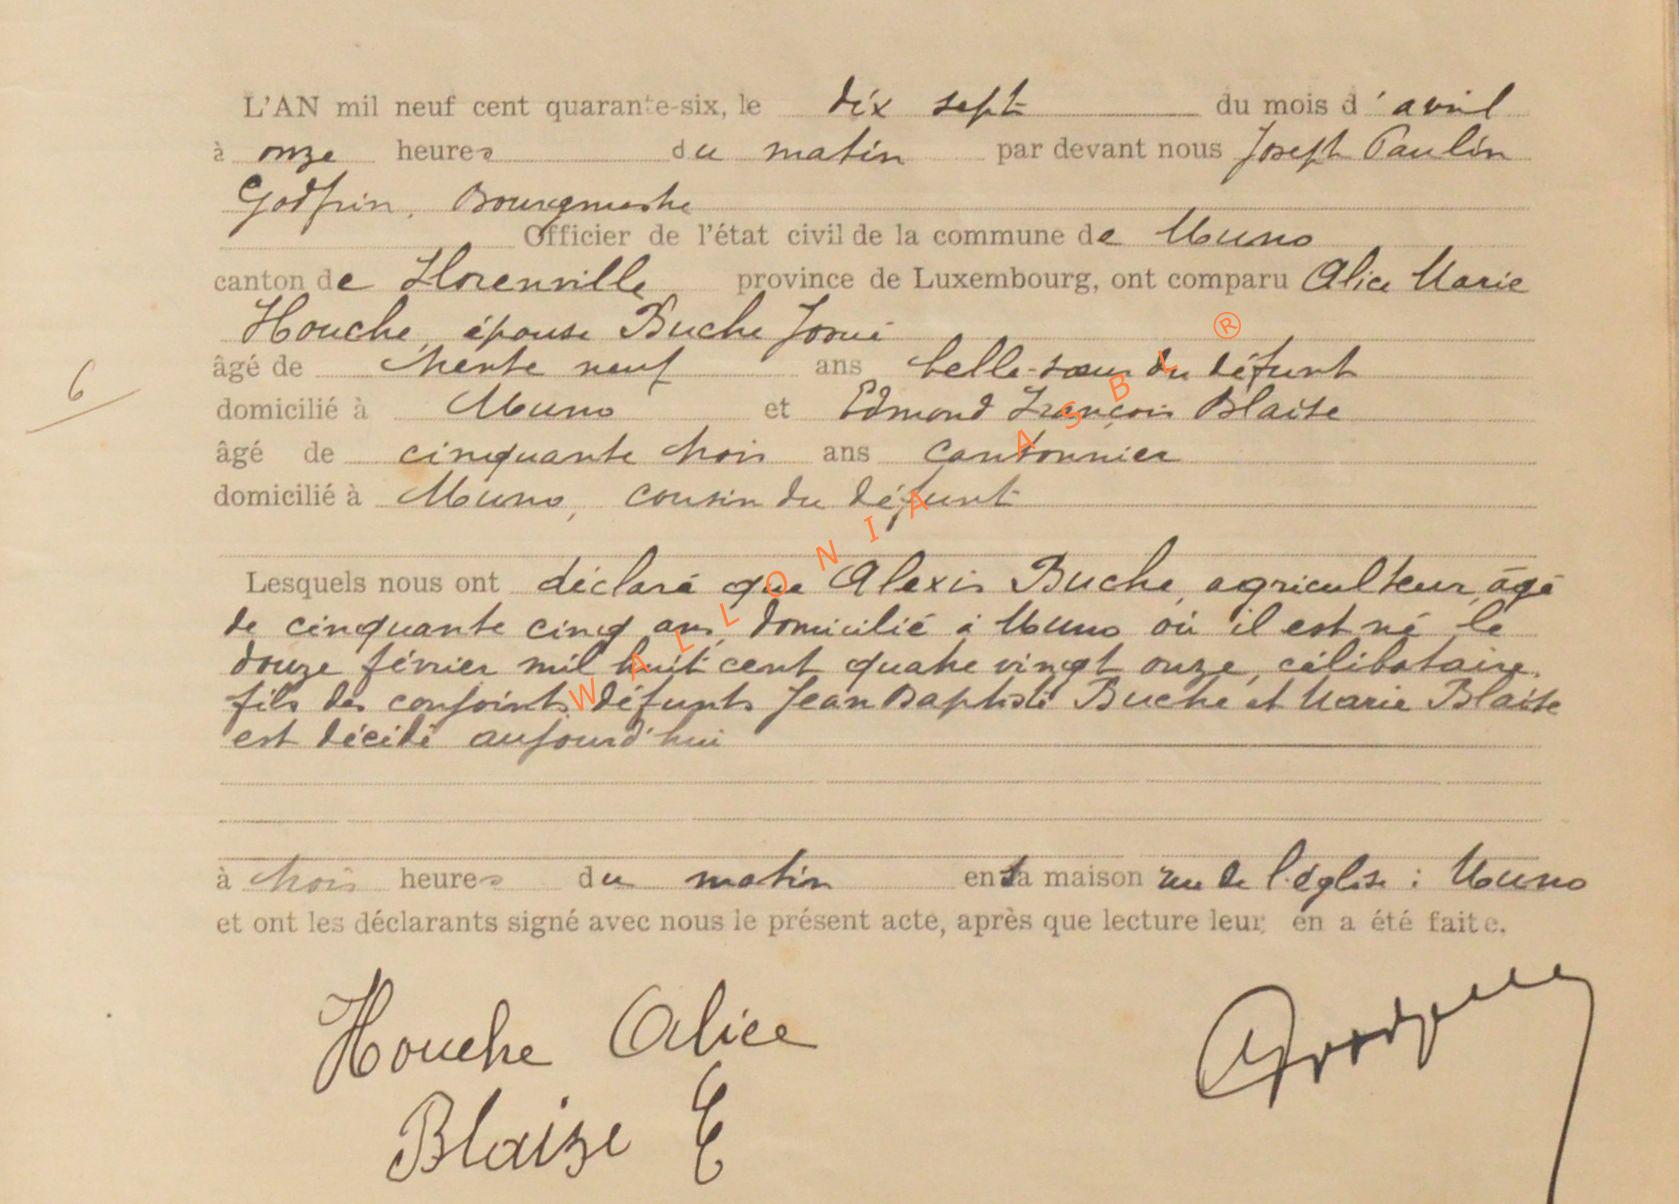 L'AN mil neuf cent quarante-six, le dix sept du mois d'avril
à onze heures du matin par devant nous Joseph Paulin
Godfrin, Bourgmestre
Officier de l'état civil de la commune de Muno
canton de Florenville province de Luxembourg, ont comparu Alice Marie
Houche, épouse Buche Josué
âgé de trente neuf ans belle-sœur du défunt
6
domicilié à Muno et Edmond François Blaise
âgé de cinquante trois ans cantonnier
domicilié à Muno, cousin du défunt
Lesquels nous ont déclaré que Alexis Buche, agriculteur, âgé
de cinquante cinq ans, domicilié à Muno où il est né le
douze février mil huit cent quatre vingt onze, célibataire,
fils des conjoints défunts Jean Baptiste Buche et Marie Blaise
est décédé aujourd'hui
à trois heures du matin en sa maison rue de l'église à Muno
et ont les déclarants signé avec nous le présent acte, après que lecture leur en a été faite.
Houche Alice
Blaise E
WALLONIA ASBL ®